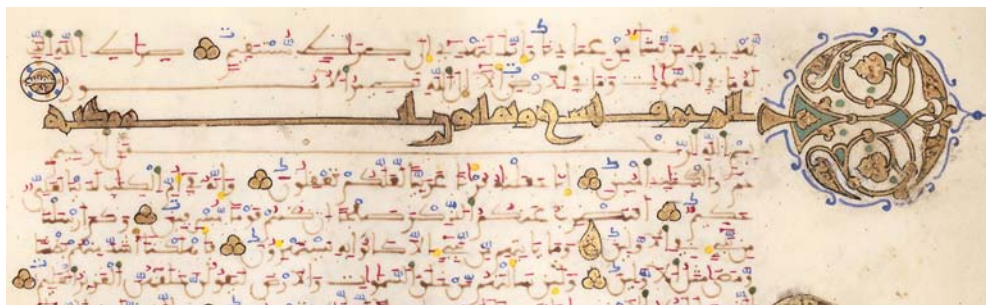 نهدي به من نشاء من عبادنا وانك لتهدي الى صرط مستقيم صرط الله الذي
له ما في السموت وما في الارض الا الى الله تصير الامور
الزخرف تسع وثمنون اية مكية
بسم الله الرحمن الرحيم
حم والكتب المبين انا جعلنه قرءنا عربيا لعلكم تعقلون وانه في ام الكتب لدينا لعلي
حكيم افنضرب عنكم الذكر صفحا ان كنتم قوما مسرفين وكم ارسلنا
من نبي في الاولين وما ياتيهم من نبي الا كانوا به يستهزءون فاهلكنا اشد منهم بطشا
ومضى مثل الاولين ولئن سالتهم من خلق السموت والارض ليقولن خلقهن العزيز العليم